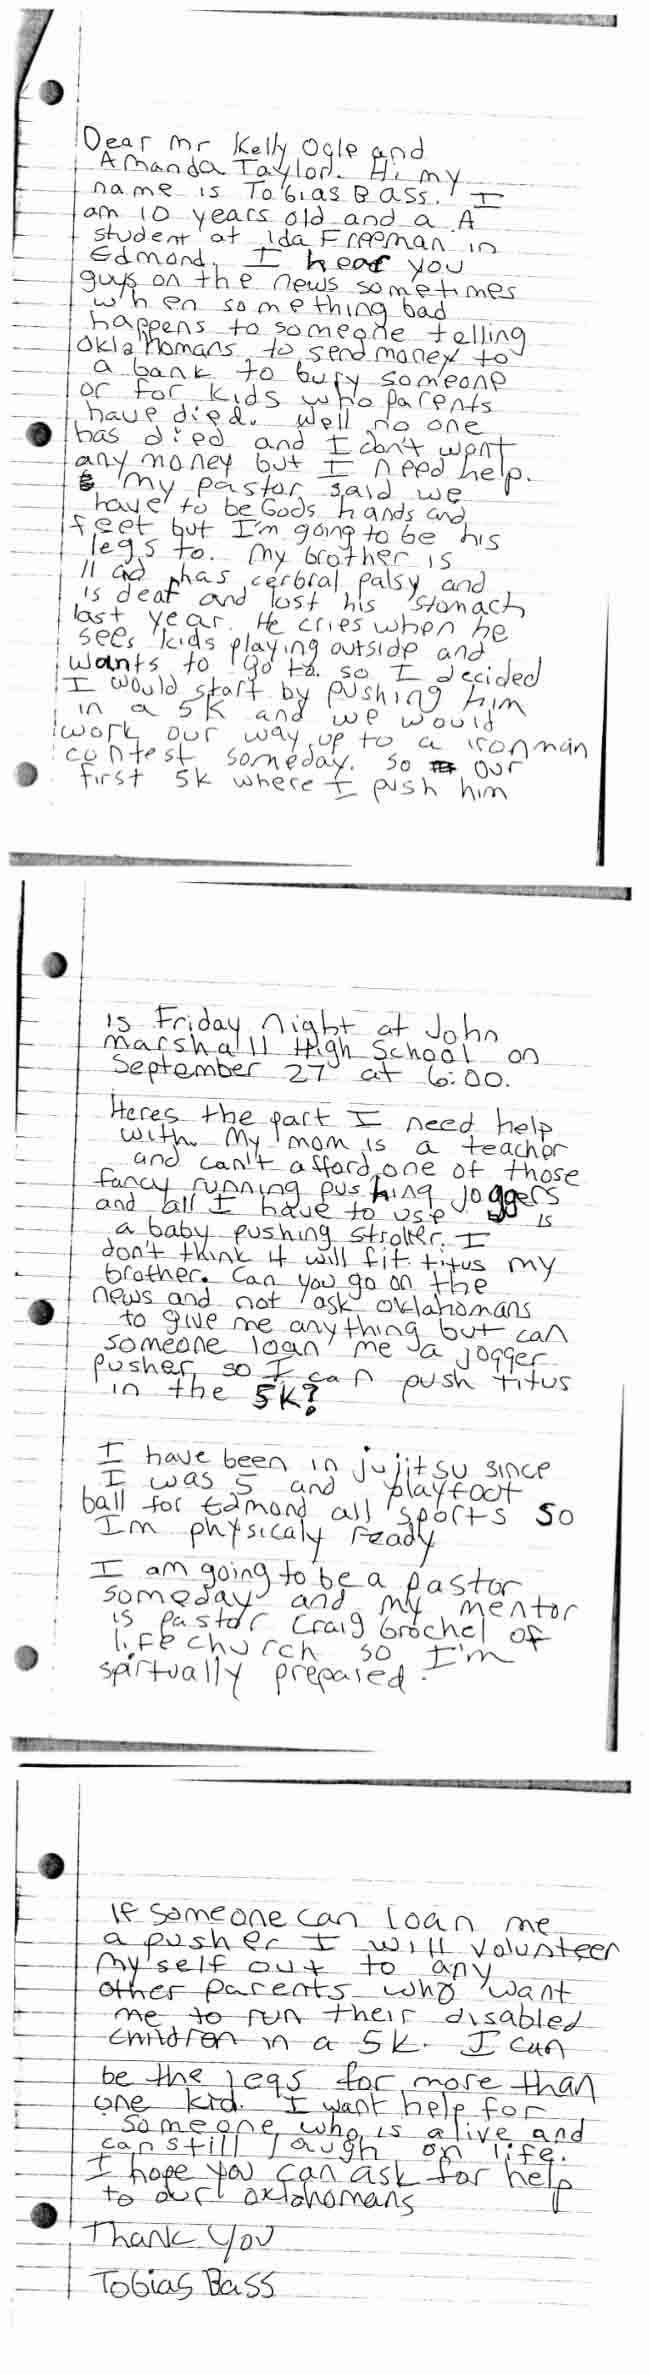 Dear Mr Kelly Ogle and
Amanda Taylor. Hi my
name is Tobias Bass. I
am 10 years old and a A
student at Ida Freeman in
Edmond. I hear you
guys on the news sometimes
when something bad
happens to someone telling
Oklahomans to send money to
a bank to bury someone
or for kids who parents
have died. Well no one
has died and I don't want
any money but I need help.
My pastor said we
have to be Gods hands and
feet but I'm going to be his
legs to. My brother is
11 and has cerbral palsy and
is deaf and lost his stomach
last year. He cries when he
sees kids playing outside and
wants to go to. so I decided
I would start by pushing him
in a 5K and we would
work our way up to a ironman
contest someday. so our
first 5K where I push him
is Friday night at John
Marshall High School on
September 27 at 6:00.
Heres the part I need help
with. My mom is a teacher
and can't afford one of those
fancy running pushing joggers
and all I have to use is
a baby pushing stroller. I
don't think it will fit titus my
brother. Can you go on the
news and not ask oklahomans
to give me anything but can
someone loan me a jogger
pusher so I can push titus
in the 5K?
I have been in jujitsu since
I was 5 and play foot
ball for Edmond all sports so
Im physicaly ready
I am going to be a pastor
someday and my mentor
is pastor Craig Grochel of
life church so I'm
spirtually prepared.
If someone can loan me
a pusher I will volunteer
my self out to any
other parents who want
me to run their disabled
children in a 5K. I can
be the legs for more than
one kid. I want help for
someone who is alive and
can still laugh on life.
I hope you can ask for help
to our oklahomans
Thank You
Tobias Bass